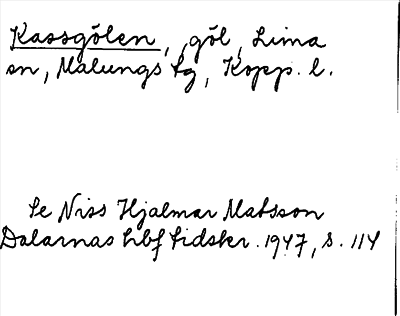 Kassgölen, göl, Lima
sn, Malungs tg, Kopp. l.
Se Niss Hjalmar Matsson
Dalarnas hbf tidskr. 1947, s. 114